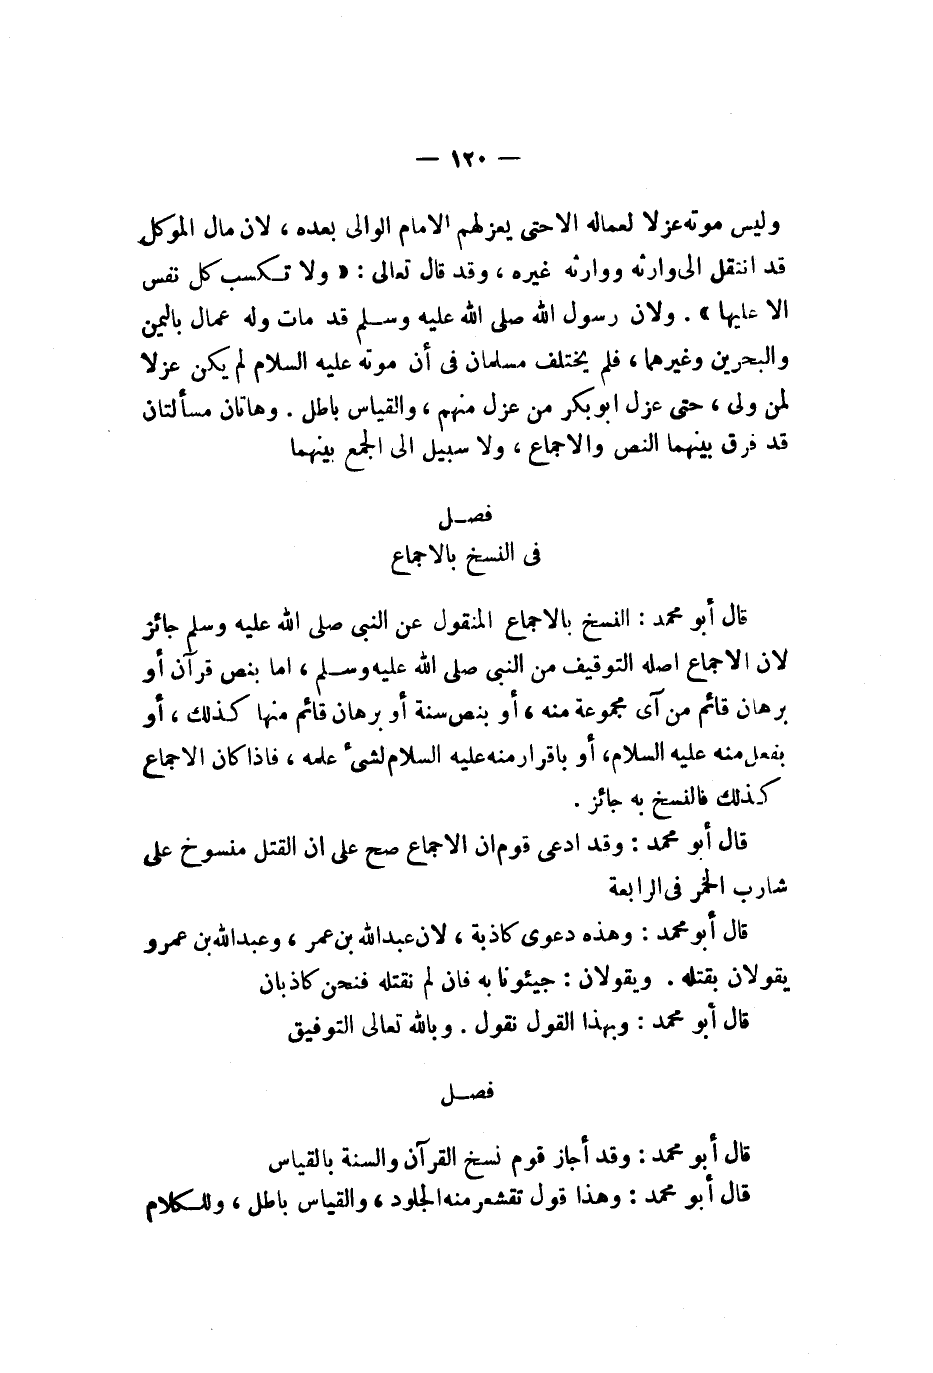 — ١٢٠ —
وليس موته عزلا لعماله الاحتى يعزلهم الامام الوالى بعده ، لان مال الموكل
قد انتقل الى وارثه ووارثه غيره ، وقد قال تعالى : « ولا تكسب كل نفس
الا عليها » . ولان رسول الله صلى الله عليه وسلم قد مات وله عمال باليمن
والبحرين وغيرهما ، فلم يختلف مسلمان فى أن موته عليه السلام لم يكن عزلا
لمن ولى ، حتى عزل ابو بكر من عزل منهم ، والقياس باطل . وهاتان مسألتان
قد فرق بينهما النص والاجماع ، ولا سبيل الى الجمع بينهما
فصل
فى النسخ بالاجماع
قال أبو محمد : النسخ بالاجماع المنقول عن النبى صلى الله عليه وسلم جائز
لان الاجماع اصله التوقيف من النبى صلى الله عليه وسلم ، اما بنص قرآن أو
برهان قائم من آى مجموعة منه ، أو بنص سنة أو برهان قائم منها كذلك ، أو
بفعل منه عليه السلام، أو باقرار منه عليه السلام لشىء علمه ، فاذا كان الاجماع
كذلك فالنسخ به جائز .
قال أبو محمد : وقد ادعى قوم ان الاجماع صح على ان القتل منسوخ على
شارب الخمر فى الرابعة
قال أبو محمد : وهذه دعوى كاذبة ، لان عبدالله بن عمر ، وعبدالله بن عمرو
يقولان بقتله . ويقولان : جيئونا به فان لم نقتله فنحن كاذبان
قال أبو محمد : وبهذا القول نقول . وبالله تعالى التوفيق
فصل
قال أبو محمد : وقد أجاز قوم نسخ القرآن والسنة بالقياس
قال أبو محمد : وهذا قول تقشعر منه الجلود ، والقياس باطل ، وللكلام